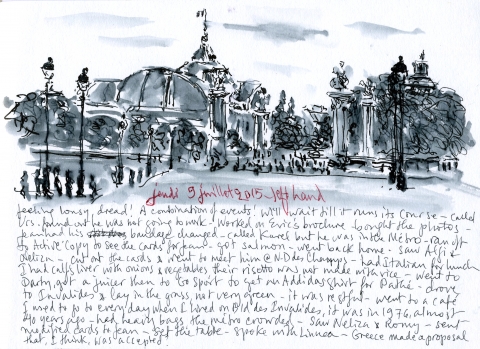 Jeudi 9 Juillet 2015 left hand
feeling lousy, dread! A combination of events. Will wait till it runs its course - called
Urs. found out he was not going to work. Worked on Eric's brochure - bought the photos -
Jean had his bandage changed - called Karel but he was in the Métro - ran off
to Active Copy to see the cards for Jean - got salmon - went back home - Saw Algi &
Neliza - cut out the cards & went to meet him @ N.D des Champs - had Italian for lunch
I had calf's liver with onions & vegetables their risotto was not made with rice - went to
Darty, got a juicer then to Go Sport to get an Adidas shirt for Pathé - drove
to Invalides & lay in the grass, not very green - it was restful - went to a café
I used to go to every day when I lived on Bld des Invalides, it was in 1976, almost
40 years ago - had heavy bags the métro crowded - Saw Neliza & Romy - sent
modified cards to Jean - set the table - spoke with Linnea - Greece made a proposal
that, I think, was accepted.